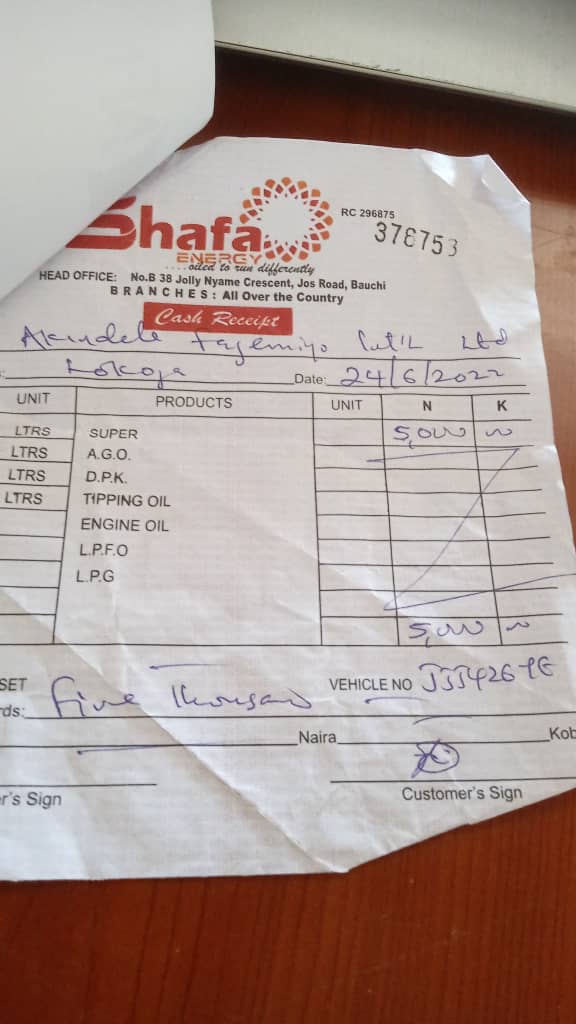 Shafa
ENERGY
....oiled to run differently
RC 296875
376753
HEAD OFFICE: No.B 38 Jolly Nyame Crescent, Jos Road, Bauchi
BRANCHES: All Over the Country
Cash Receipt
Akindele Fayemiyo Int'L Ltd
Lokoja Date: 24/6/2022
UNIT PRODUCTS UNIT N K
LTRS SUPER 5,000 00
LTRS A.G.O.
LTRS D.P.K.
LTRS TIPPING OIL
ENGINE OIL
L.P.F.O
L.P.G
5,000 00
SET VEHICLE NO
rds: Five Thousand
Naira Kob
r's Sign Customer's Sign